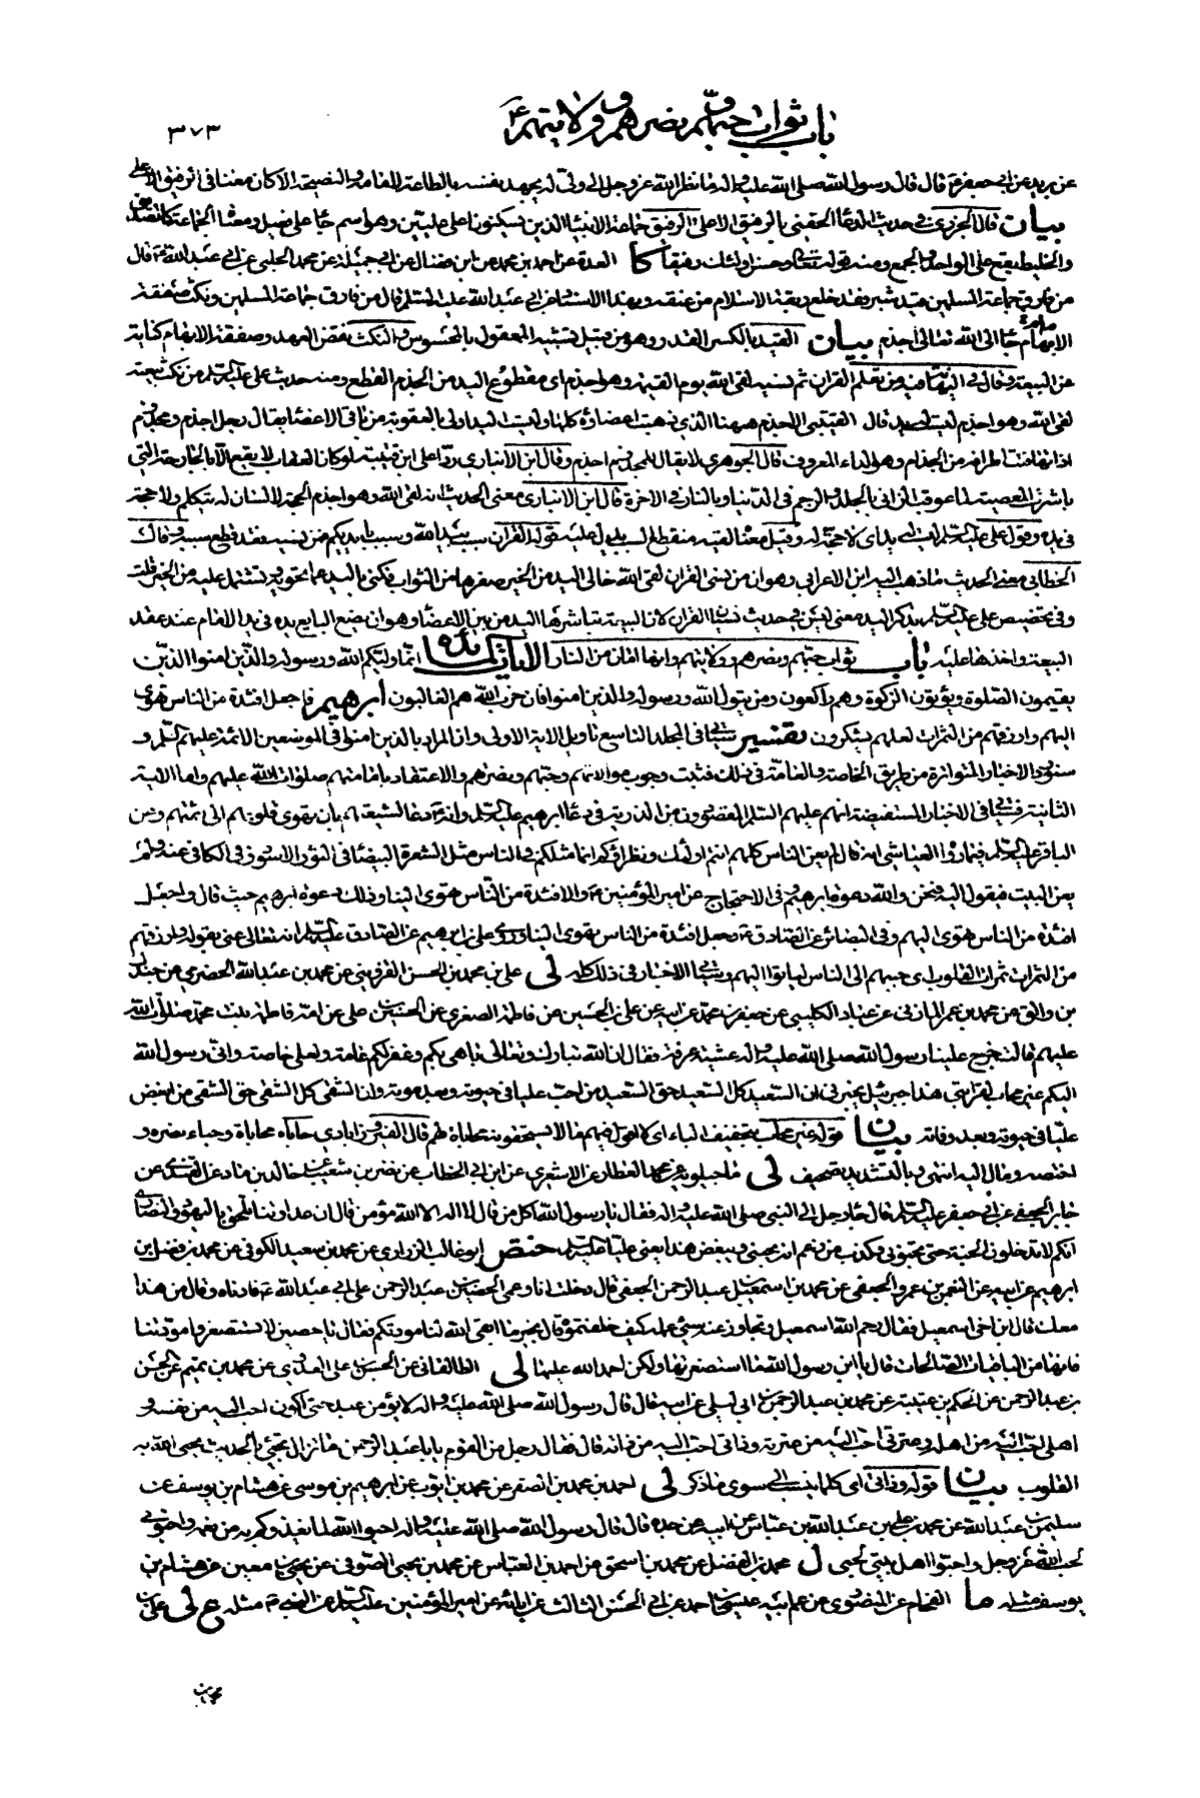 باب ثواب حبهم ونصرهم وولايتهم ع
٣٧٣
عن بريد عن ابي جعفر ع قال قال رسول الله صلى الله عليه واله ما نظر الله عز وجل الى ولي له يجهد نفسه بالطاعة لامامه والنصيحة الا كان معنا في الرفيق الاعلى
بيان قال الجزري في حديث الدعاء الحقني بالرفيق الاعلى الرفيق جماعة الانبياء الذين يسكنون اعلى عليين وهو اسم جاء على فعيل ومعناه الجماعة كالصديق
والخليط يقع على الواحد والجمع ومنه قوله تعالى وحسن اولئك رفيقا كا العدة عن احمد بن محمد عن ابن فضال عن ابي جميلة عن محمد الحلبي عن ابي عبد الله ع قال
من فارق جماعة المسلمين قيد شبر فقد خلع ربقة الاسلام من عنقه وبهذا الاسناد عن ابي عبد الله عليه السلام قال من فارق جماعة المسلمين ونكث صفقة
الابهام جاء الى الله تعالى اجذم بيان القيد بالكسر القدر وهو من قبيل تشبيه المعقول بالمحسوس والنكث نقض العهد وصفقة الابهام كناية
عن البيعة وقال في النهاية فيه من تعلم القران ثم نسيه لقي الله يوم القيمة وهو اجذم اي مقطوع اليد من الجذم القطع ومنه حديث علي عليه السلم من نكث بيعته
لقي الله وهو اجذم ليست له يد قال القتيبي الاجذم ههنا الذي ذهبت اعضاؤه كلها وليست اليد اولى بالعقوبة من باقي الاعضاء يقال رجل اجذم ومجذوم
اذا تهافتت اطرافه من الجذام وهو الداء المعروف قال الجوهري لا يقال للمجذوم اجذم وقال ابن الانباري ردا على ابن قتيبة لو كان العقاب لا يقع الا بالجارحة التي
باشرت المعصية لما عوقب الزاني بالجلد والرجم في الدنيا وبالنار في الاخرة قال ابن الانباري معنى الحديث انه لقي الله وهو اجذم الحجة لا لسان له يتكلم ولا حجة
في يده وقول علي عليه السلم ليست له يد اي لا حجة له وقيل معناه لقيه منقطع السبب يدل عليه قوله القران سبب بيد الله وسبب بايديكم فمن نسيه فقد قطع سببه وقال
الخطابي معنى الحديث ما ذهب اليه ابن الاعرابي وهو ان من نسي القران لقي الله خالي اليد من الخير صفرها من الثواب فكنى باليد عما تحويه وتشتمل عليه من الخير قلت
وفي تخصيص علي عليه السلم بذكر اليد معنى ليس في حديث نسيان القران لان البيعة تباشرها اليد من بين الاعضاء وهو ان يضع البايع يده في يد الامام عند عقد
البيعة واخذها عليه باب ثواب حبهم ونصرهم وولايتهم وانها امان من النار الايات المائدة انما وليكم الله ورسوله والذين امنوا الذين
يقيمون الصلوة ويؤتون الزكوة وهم راكعون ومن يتول الله ورسوله والذين امنوا فان حزب الله هم الغالبون ابرهيم فاجعل افئدة من الناس تهوي
اليهم وارزقهم من الثمرات لعلهم يشكرون تفسير سياتي في المجلد التاسع تاويل الاية الاولى وان المراد بالذين امنوا في الموضعين الائمة عليهم السلم و
سنورد الاخبار المتواترة من طريق الخاصة والعامة في ذلك فثبت وجوب موالاتهم وحبهم ونصرهم والاعتقاد بامامتهم صلوات الله عليهم واما الاية
الثانية فسياتي في الاخبار المستفيضة انهم عليهم السلم المقصودون من الذرية في دعاء ابرهيم عليه السلم وانه ع دعا لشيعتهم بان تهوي قلوبهم الى ائمتهم وعن
الباقر عليه السلم فيما رواه العياشي انه قال لم يعن الناس كلهم انتم اولئك ونظراؤكم انما مثلكم في الناس مثل الشعرة البيضاء في الثور الاسود وفي الكافي عنه ولم
يعن البيت فيقول اليه فنحن والله دعوة ابرهيم وفي الاحتجاج عن امير المؤمنين ع والافئدة من الناس تهوي الينا وذلك دعوة ابرهيم حيث قال واجعل
افئدة من الناس تهوي اليهم وفي البصائر عن الصادق ع وجعل افئدة من الناس تهوي الينا وروى علي بن ابرهيم عن الصادق عليه السلم انه تعالى عنى بقوله وارزقهم
من الثمرات ثمرات القلوب اي حببهم الى الناس لياتوا اليهم وسياتي الاخبار في ذلك كله لي علي بن محمد بن الحسن القزويني عن محمد بن عبد الله الحضرمي عن جندل
بن والق عن محمد بن عمر المازني عن عباد الكليبي عن جعفر بن محمد عن ابيه عن علي بن الحسين عن فاطمة الصغرى عن الحسين بن علي عن امه فاطمة بنت محمد صلوات الله
عليهم قالت خرج علينا رسول الله صلى الله عليه واله عشية عرفة فقال ان الله تبارك وتعالى باهى بكم وغفر لكم عامة ولعلي خاصة واني رسول الله
اليكم غير محاب لقرابتي هذا جبرئيل يخبرني ان السعيد كل السعيد حق السعيد من احب عليا في حيوته وبعد موته وان الشقي كل الشقي حق الشقي من ابغض
عليا في حيوته وبعد وفاته بيان قوله غير محاب بتخفيف الباء اي لا اقول فيهم ما لا يستحقونه محاباة لهم قال الفيروزابادي حاباه محاباة وحباء نصره و
اختصه ومال اليه انتهى وبالتشديد تصحيف لي ماجيلويه عن محمد العطار عن الاشعري عن ابن ابي الخطاب عن نضر بن شعيب عن خالد بن ماد عن القندي عن
جابر الجعفي عن ابي جعفر عليه السلم قال جاء رجل الى النبي صلى الله عليه واله فقال يا رسول الله اكل من قال لا اله الا الله مؤمن قال ان عداوتنا تلحق باليهود والنصارى
انكم لا تدخلون الجنة حتى تحبوني وكذب من زعم انه يحبني ويبغض هذا يعني عليا عليه السلم ختص ابو غالب الزراري عن محمد بن سعيد الكوفي عن محمد بن فضل بن
ابرهيم عن ابيه عن النعمن بن عمرو الجعفي عن محمد بن اسمعيل بن عبد الرحمن الجعفي قال دخلت انا وعمي الحصين بن عبد الرحمن على ابي عبد الله ع فادناه وقال من هذا
معك قال ابن اخي اسمعيل فقال رحم الله اسمعيل وتجاوز عنه سيئ عمله كيف خلفتموه قال بخير ما ابقى الله لنا مودتكم فقال يا حصين لا تستصغروا مودتنا
فانها من الباقيات الصالحات قال يا ابن رسول الله ما استصغرتها ولكن احمد الله عليها لي الطالقاني عن الحسن بن علي العدوي عن محمد بن تميم عن الحسن
بن عبد الرحمن عن الحكم بن عتيبة عن محمد بن عبد الرحمن بن ابي ليلى عن ابيه قال قال رسول الله صلى الله عليه واله لا يؤمن عبد حتى اكون احب اليه من نفسه و
اهلي احب اليه من اهله وعترتي احب اليه من عترته وذاتي احب اليه من ذاته قال فقال رجل من القوم يا با عبد الرحمن ما تزال تجيئ بالحديث يحيي الله به
القلوب بيان قوله وذاتي اي كلما ينسب الي سوى ما ذكر لي احمد بن محمد بن الصقر عن محمد بن ايوب عن ابرهيم بن موسى عن هشام بن يوسف عن
سليمن بن عبد الله عن محمد بن علي بن عبد الله بن عباس عن ابيه عن جده قال قال رسول الله صلى الله عليه واله احبوا الله لما يغذوكم به من نعمه واحبوني
لحب الله عز وجل واحبوا اهل بيتي لحبي ل محمد بن الفضل عن محمد بن اسحق عن احمد بن العباس عن محمد بن يحيى الصوفي عن يحيى بن معين عن هشام بن
يوسف مثله ما الفحام عن المنصوري عن عم ابيه عيسى بن احمد عن ابي الحسن الثالث عن ابائه عن امير المؤمنين عليه السلم عن النبي ص مثله ع لي علي بن
محمد بن